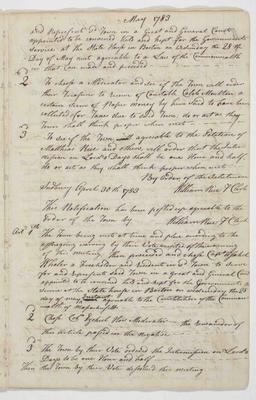 May 1783
and Represent sd Town in a Great and General Court
appointed to be convened held and kept for the Government
Service at the State House in Boston on Wednesday the 28 of
Day of May next agreeable to a Law of the Commonwealth
in that Case made and provided
2 To chuse a Moderator and see if the Town will order
their Treasurer to receive of Constable Caleb Moulton a
certain Sum of Paper money by him said to have been
collected for Taxes due to said Town, do or act as they
Town shall think proper when met
3 To see if the Town will agreeable to the Petition of
Matthias Rice and others, will order that the Inter
mission on Lord's Days shall be one Hour and half.
do or act as they shall think proper when met
By Order of the Selectmen
Sudbury April 30th 1783
William Rice T Clerk
This Notification has been posted up agreeable to the
Order of the Town
William Rice T Clerk
The Town being met at time and place according to the
of this meeting. Then proceeded and chose Capt Asahel
Wheeler a Freeholder and Resident in sd Town to
for and Represent said Town in a Great and General Court
appointed to be convened held and kept for the Governments
Service at the State House in Boston on Wednesday the 28
day of May Instant agreeable to the Constitution of the Common
wealth of Massachusetts
2 Chose Ezekiel How Moderator the remainder of
this Article passed in the negative
3 The Town by their Vote ordered the Intermission on Lord's
Days to be one Hour and half
Then the Town by their Vote dissolved this meeting